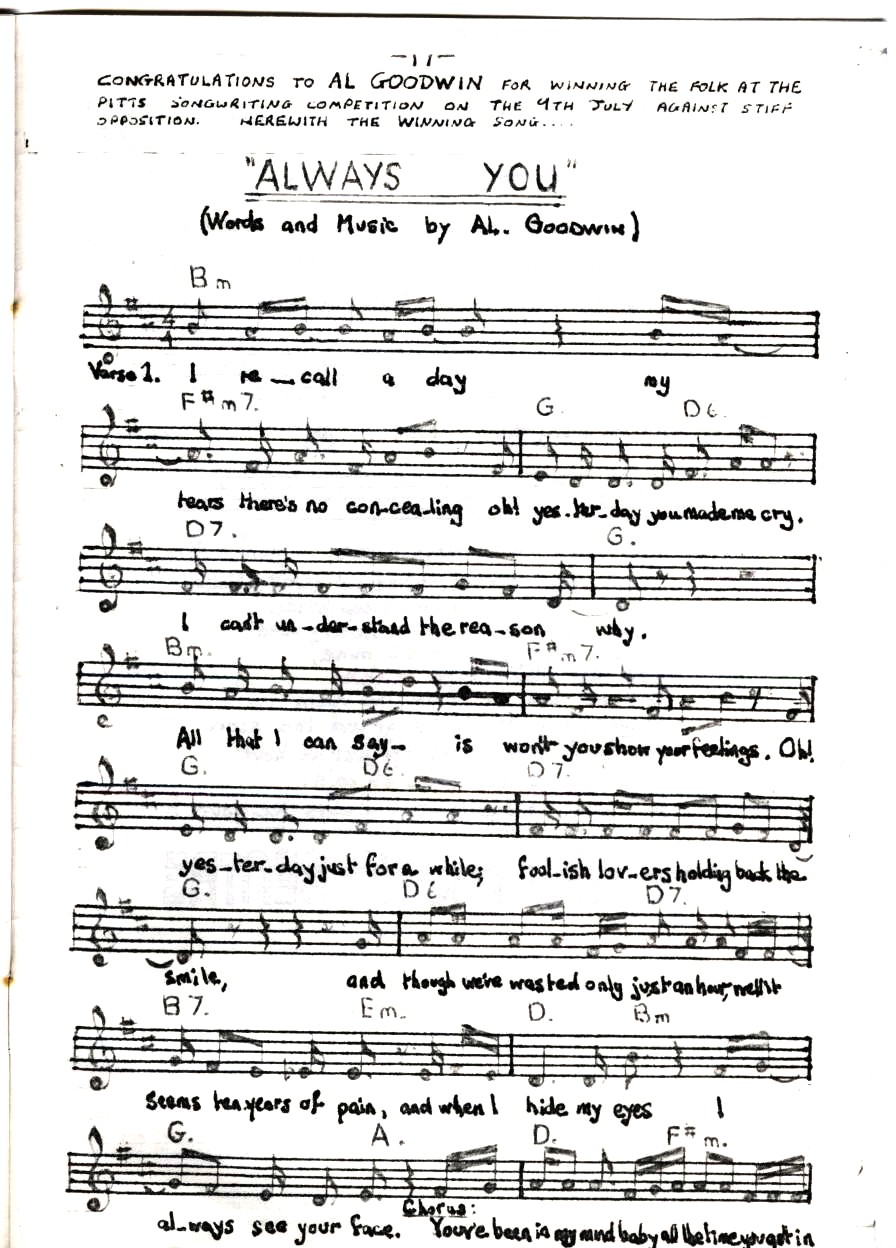 -17-
CONGRATULATIONS TO AL GOODWIN FOR WINNING THE FOLK AT THE
PITTS SONGWRITING COMPETITION ON THE 9TH JULY AGAINST STIFF
OPPOSITION. HEREWITH THE WINNING SONG....
"ALWAYS YOU"
(Words and Music by AL. GOODWIN)
Bm
4
4
Verse 1. I re-call a day my
F#m7.
G. D6.
tears there's no con-cea-ling oh! yes-ter-day you made me cry.
D7. G.
I can't un-der-stand the rea-son why.
Bm. F#m7.
All that I can say- is won't you show your feelings. Oh!
G. D6. D7.
yes-ter-day just for a while; fool-ish lov-ers holding back the
G. D6 D7.
smile, and though we've wasted only just an hour, well it
B7. Em. D. Bm
seems ten years of pain, and when I hide my eyes I
G. A. D. F#m.
Chorus:
al-ways see your face. You've been in my mind baby all the time you got in